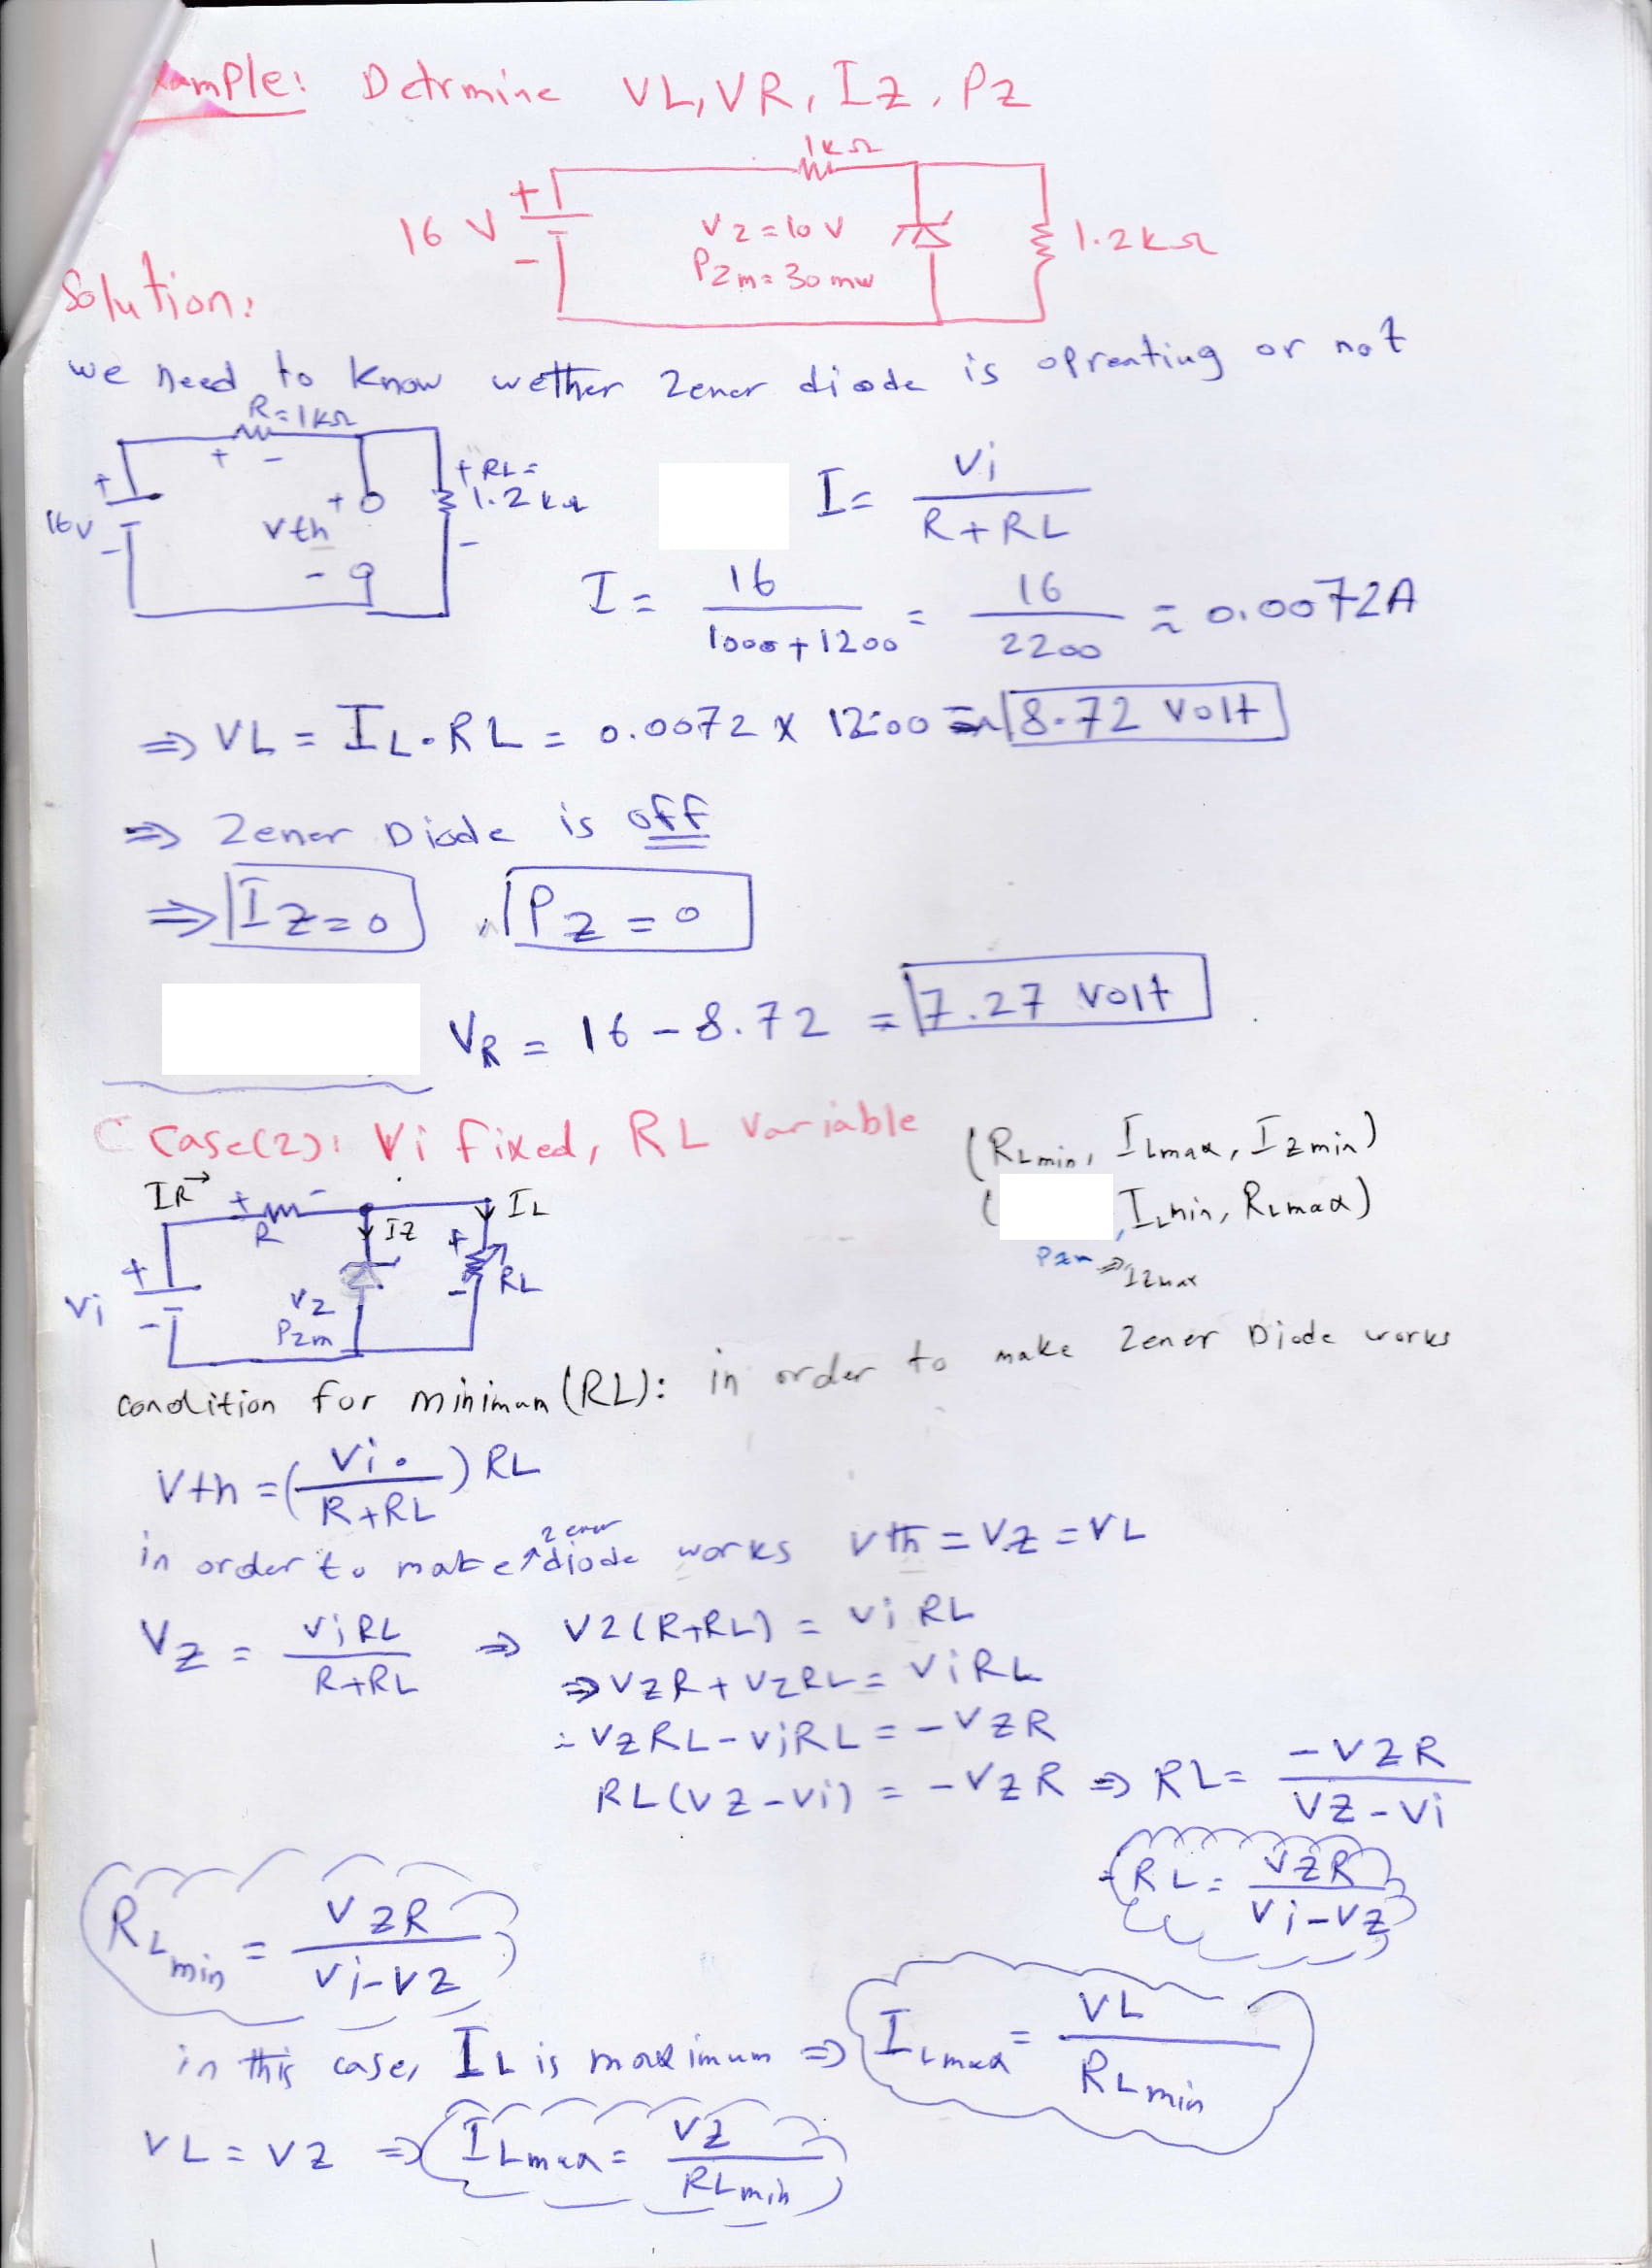 xample: Detrmine VL, VR, IZ, PZ
1kΩ
16 V
+
-
VZ = 10 V
PZm = 30 mw
1.2kΩ
Solution:
we need to know wether Zener diode is oprenting or not
R = 1kΩ
+ -
+
16V
-
Vth
+
-
+ RL =
1.2kΩ
-
I = Vi / (R + RL)
I = 16 / (1000 + 1200) = 16 / 2200 ≈ 0.0072A
⇒ VL = IL . RL = 0.0072 x 1200 = 8.72 Volt
⇒ Zener Diode is off
⇒ IZ = 0 , PZ = 0
VR = 16 - 8.72 = 7.27 Volt
Case(2): Vi fixed, RL Variable
(RLmin, ILmax, IZmin)
( , ILmin, RLmax)
PZm ⇒ IZmax
IR→ + -
R
IZ
IL
+
Vi
-
VZ
PZm
+
-
RL
condition for minimum (RL): in order to make Zener Diode works
Vth = (Vi / (R + RL)) RL
in order to make zener diode works Vth = VZ = VL
VZ = Vi RL / (R + RL) ⇒ VZ (R + RL) = Vi RL
⇒ VZR + VZRL = ViRL
= VZRL - ViRL = -VZR
RL(VZ - Vi) = -VZR ⇒ RL = -VZR / (VZ - Vi)
RL = VZR / (Vi - VZ)
RLmin = VZR / (Vi - VZ)
in this case, IL is maximum ⇒ ILmax = VL / RLmin
VL = VZ ⇒ ILmax = VZ / RLmin